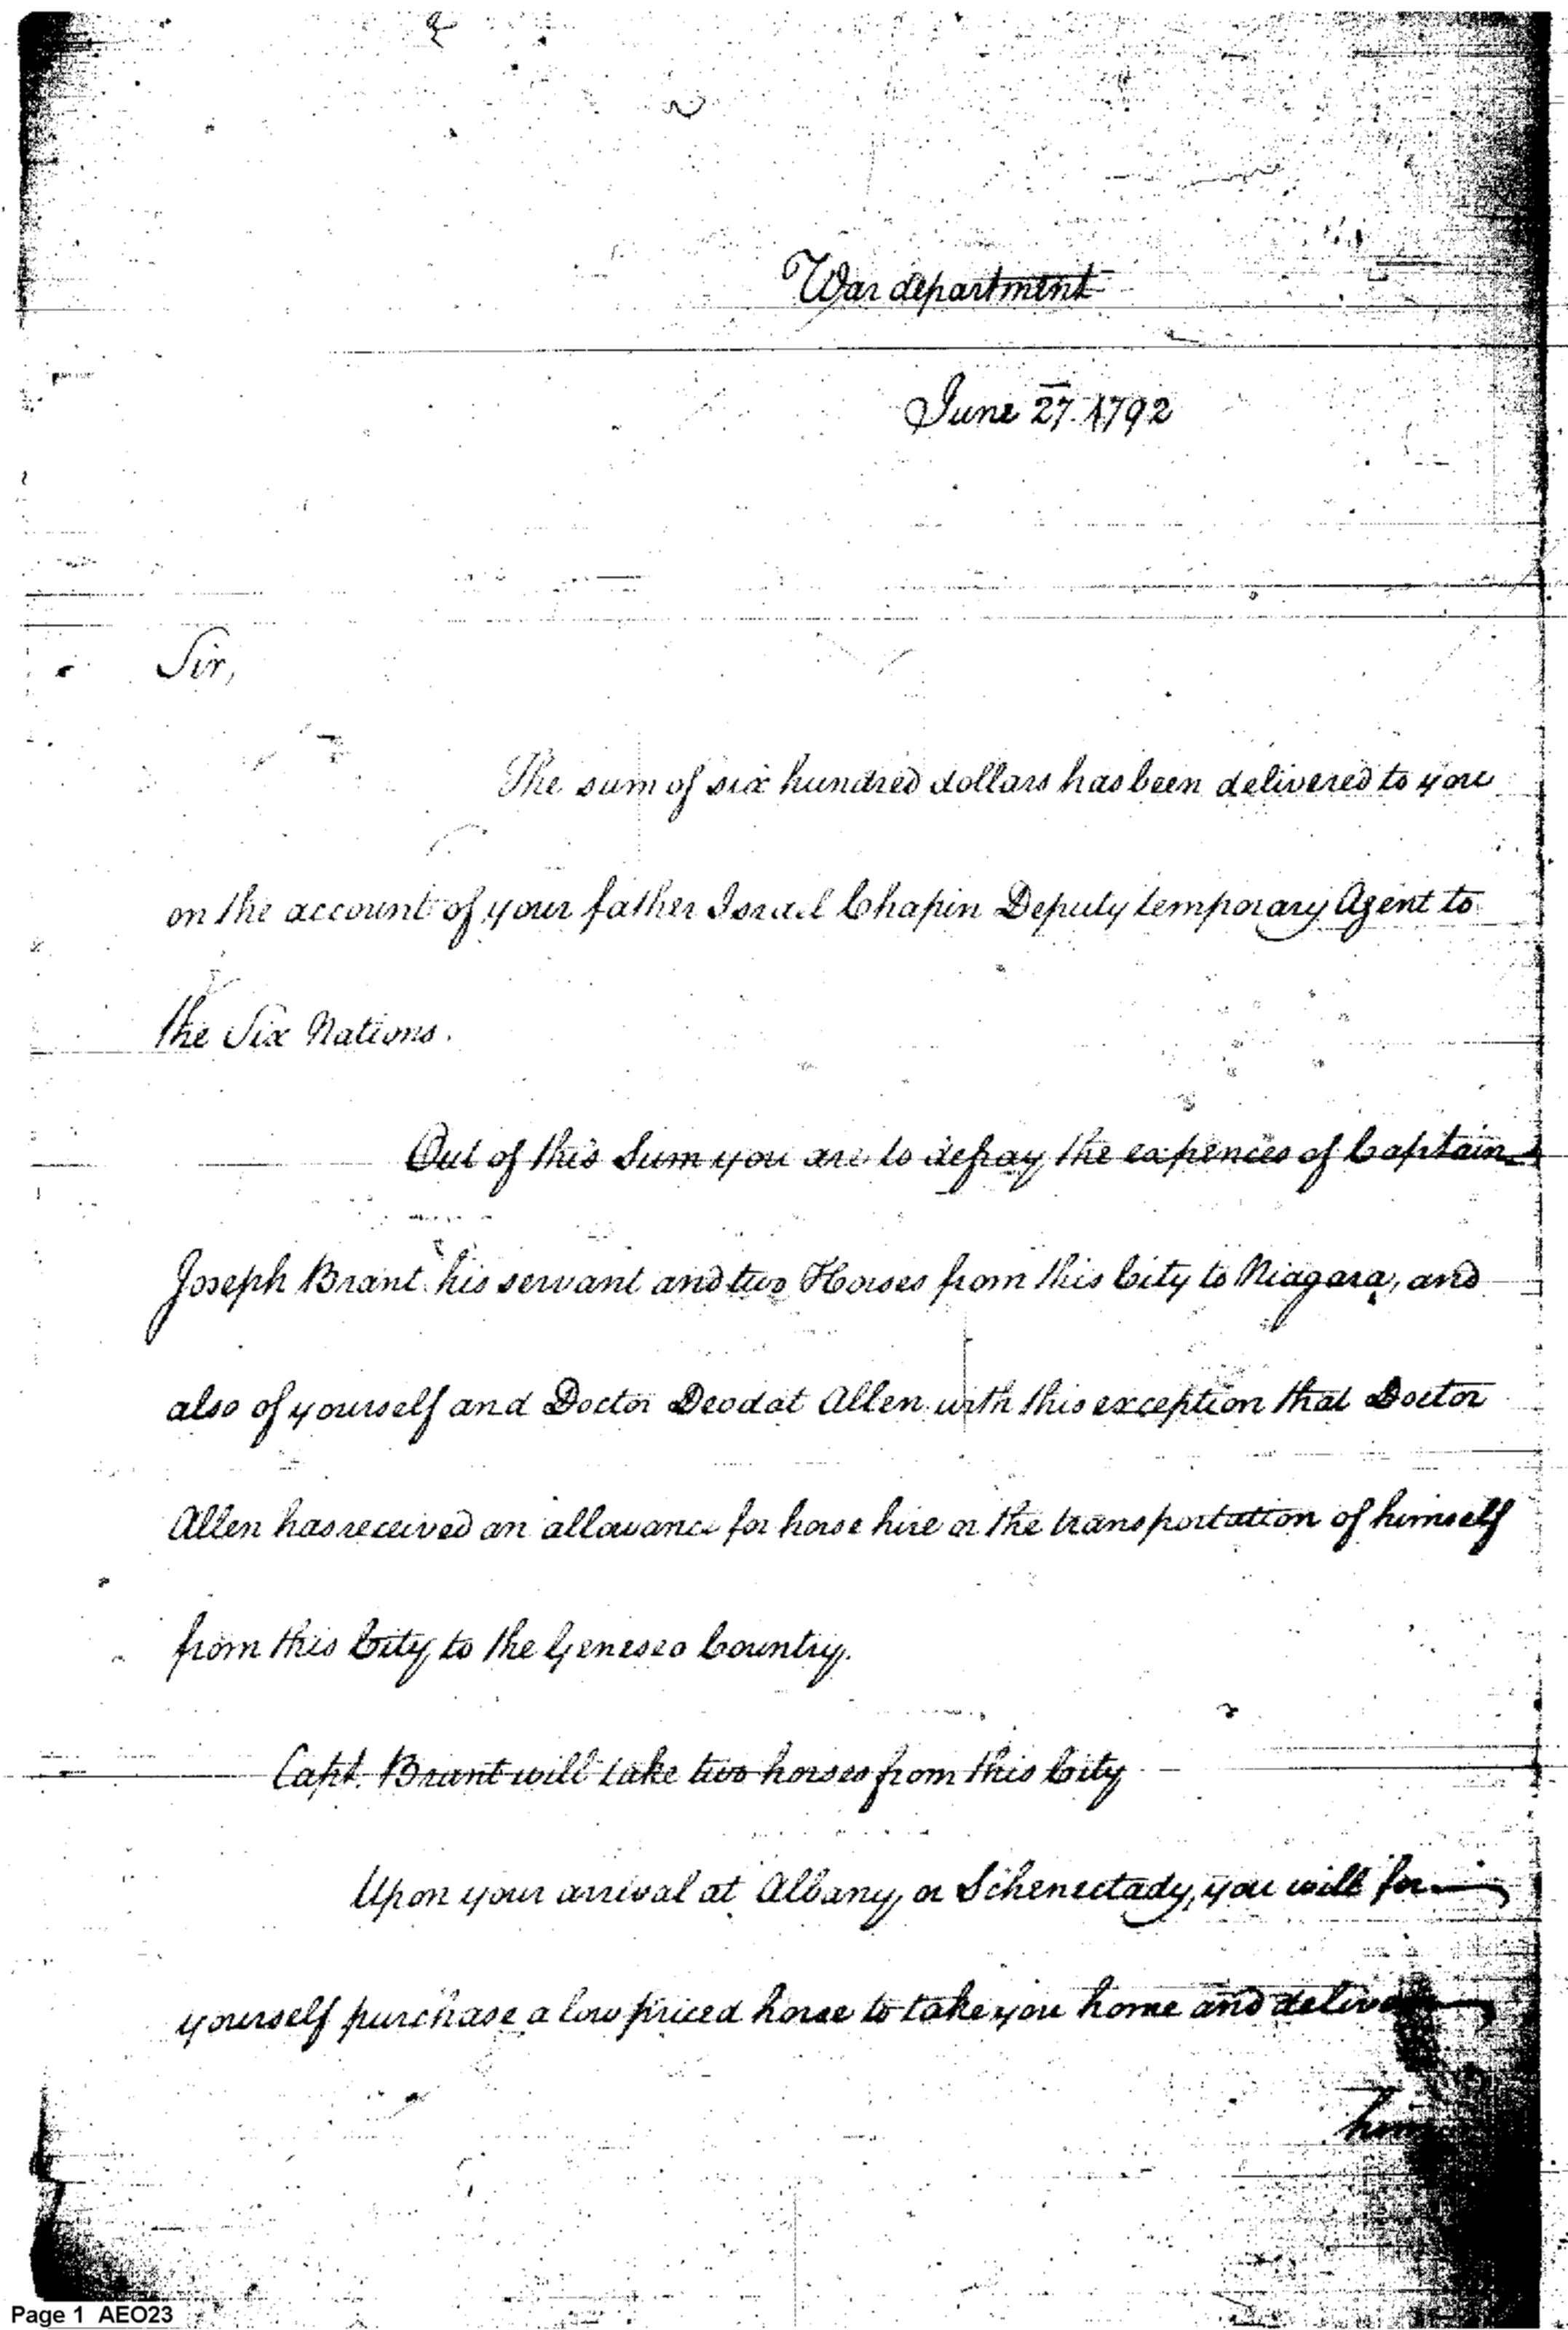 War department
June 27. 1792
Sir,
The sum of six hundred dollars has been delivered to you
on the account of your father Israel Chapin Deputy temporary Agent to
the Six Nations.
Out of this Sum you are to defray the expences of Captain
Joseph Brant his servant and two Horses from this City to Niagara, and
also of yourself and Doctor Deodat Allen with this exception that Doctor
Allen has received an allowance for horse hire or the transportation of himself
from this City to the Geneseo Country.
Capt. Brant will take two horses from this City
Upon your arrival at Albany, or Schenectady, you will for
yourself purchase a low priced horse to take you home and deliver
him
Page 1 AEO23